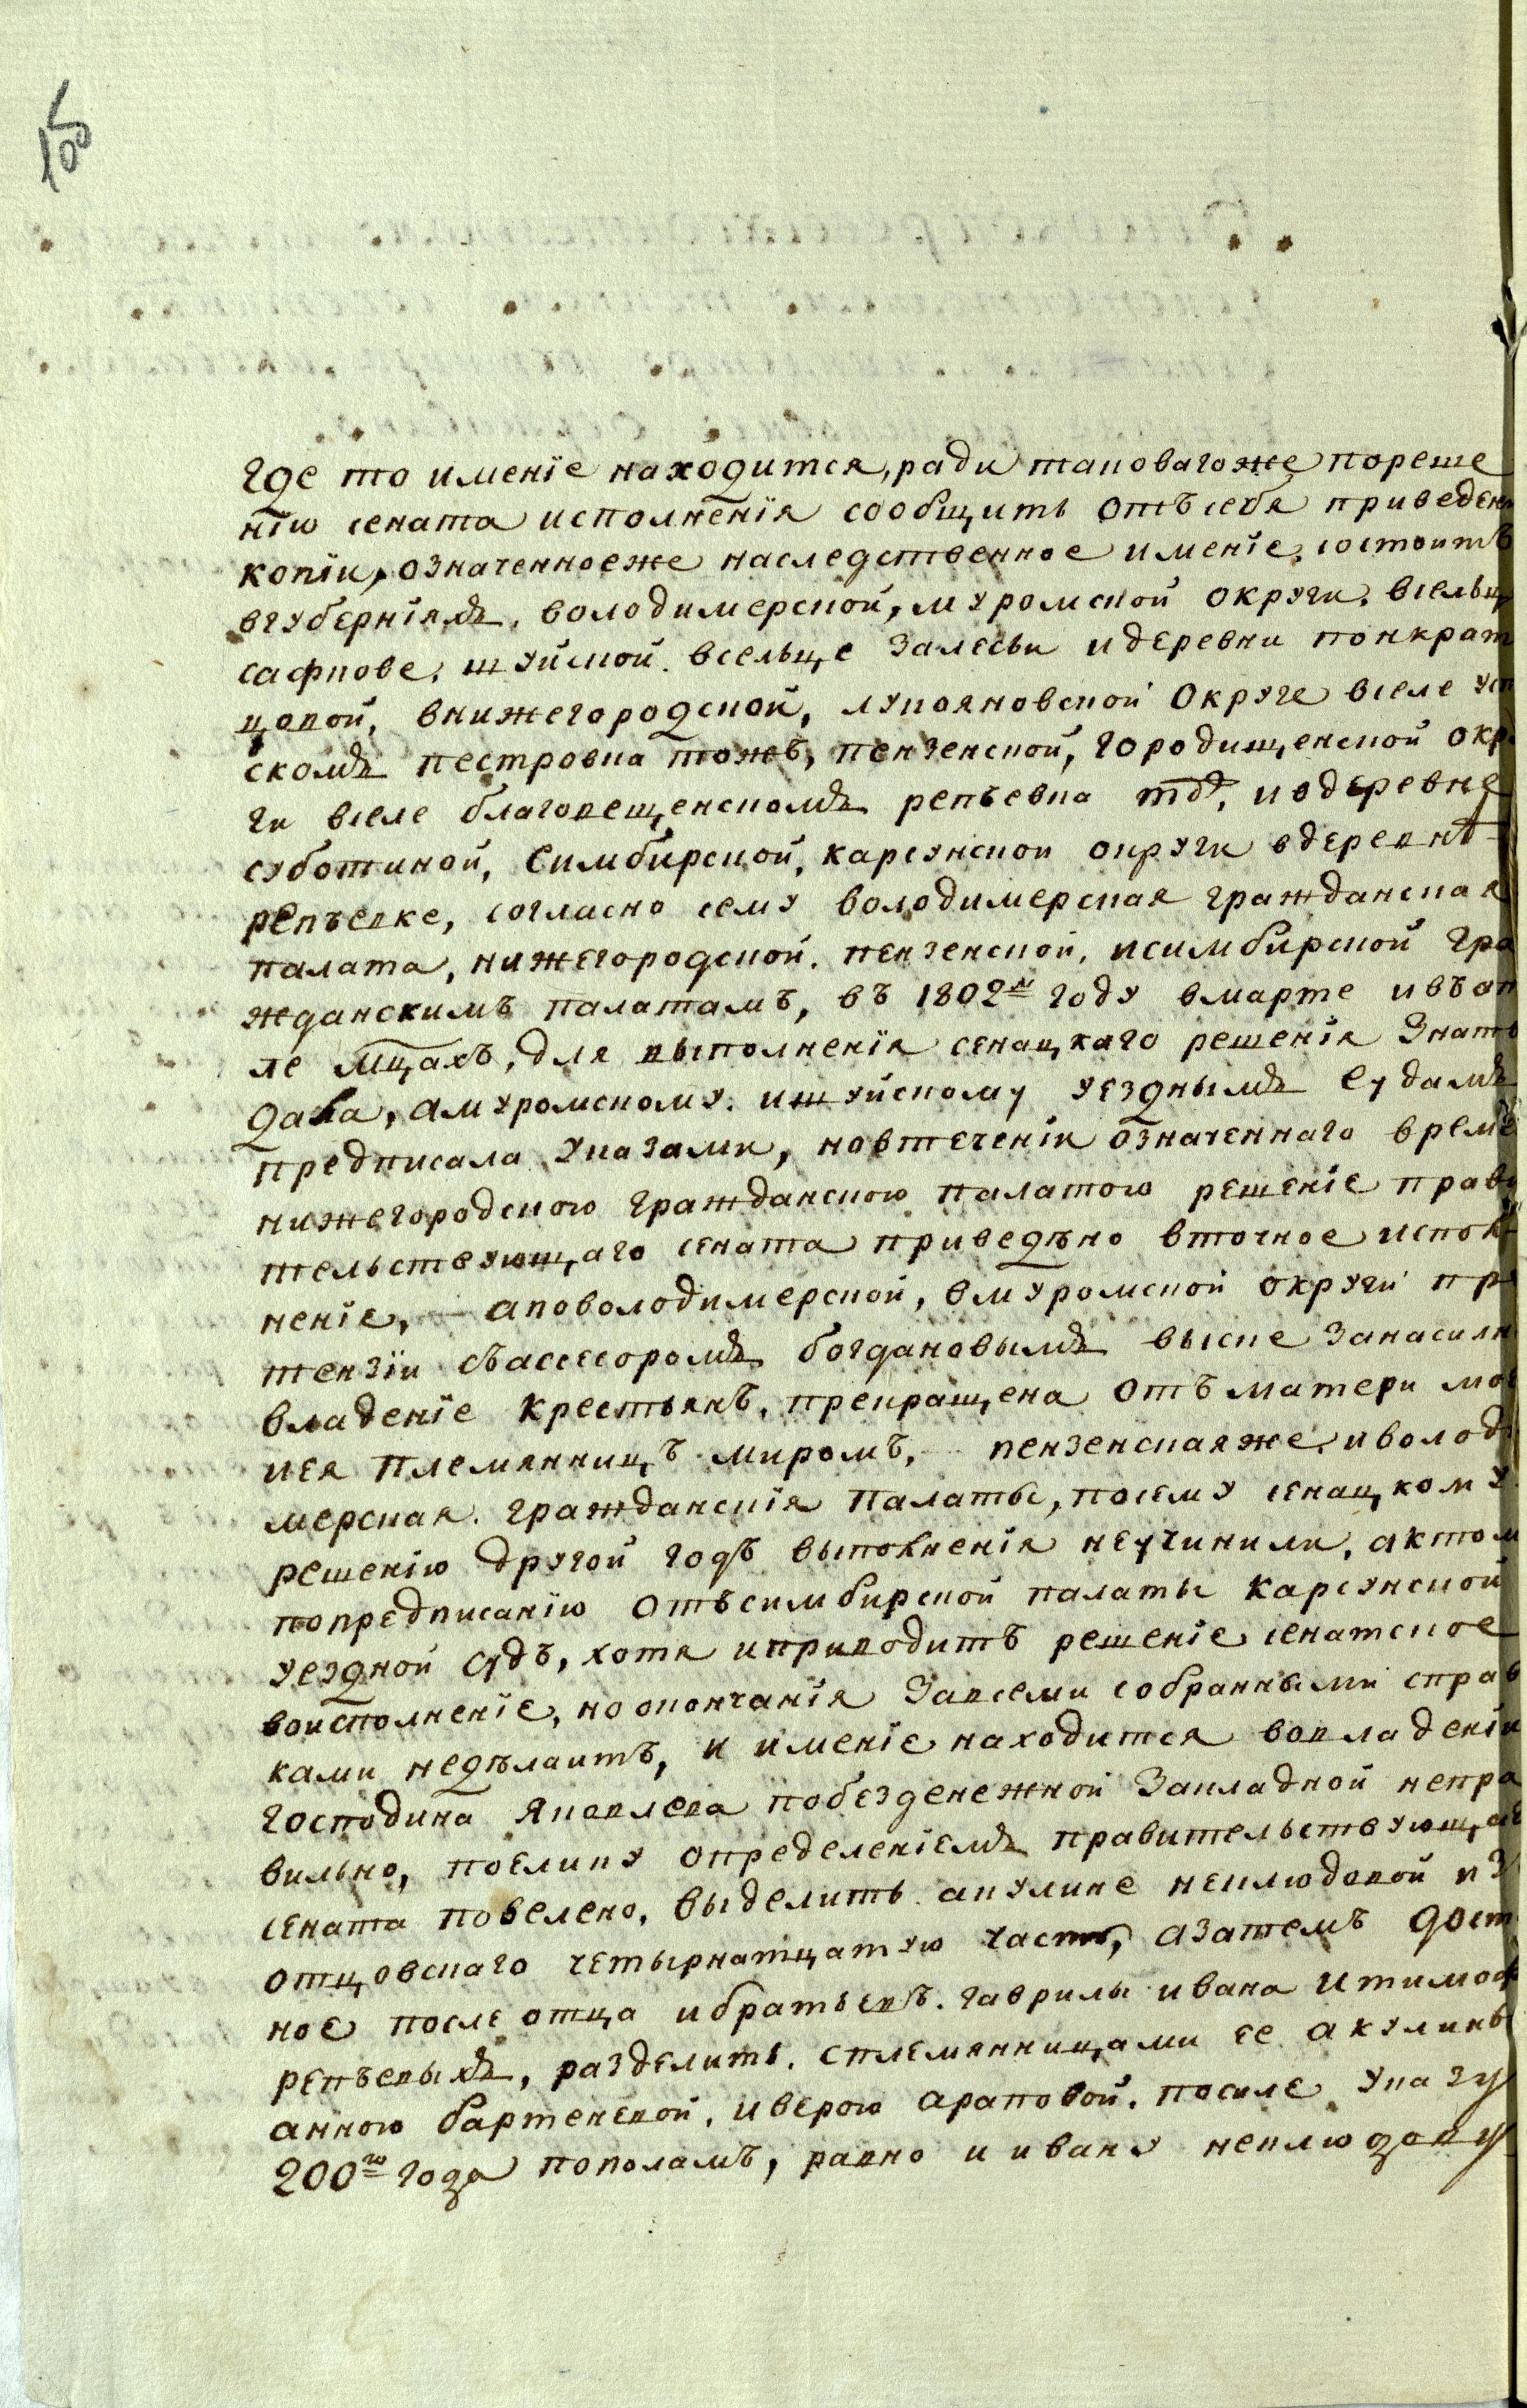 100
где то именїе находится, ради таковагоже пореше
нїю сената исполненїя сообщить отъ себя приведен
копїи, означенноеже наследственное именїе, состоитъ
вгубернїяхъ, володимерской, муромской округи, всельц
сафпове, шуйской всельце Залесьи идеревни понкрат
цовой, внижегородской, лукояновской округе вселе усп
скомъ пестровка тожъ, пензенской, городищенской окр
ги вселе благовещенскомъ репъевка тод, иодеревне
суботиной, Симбирской, карсунской округи вдеревнѣ
репъевке, согласно сему володимерская гражданская
палата, нижегородской, пензенской, исимбирской гра
жданскимъ палатамъ, въ 1802м году вмарте ивъап
ле мцахъ, для выполненїя сенацкаго решенїя Знать
дала, амуромскому ишуйскому уезднымъ судамъ
предписала указами, новтеченїи означеннаго време
нижегородскою гражданскою палатою решенїе прави
тельствующаго сената приведѣно вточное испол
ненїе, аповолодимерской, вмуромской округи пре
тензїи съасессоромъ богдановымъ выске Занасилн
владенїе крестьянъ, прекращена отъ матери мое
иея племянницъ миромъ, пензенскаяже, иволоди
мерская гражданскїя палаты, посему сенацкому
решенїю другой годъ выполненїя неучинили, актом
попредписанїю отъсимбирской палаты карсунской
уездной судъ, хотя иприводитъ решенїе сенатское
воисполненїе, ноокончанїя Завсеми собранными справ
ками недѣлаитъ, и именїе находится вовладенїи
господина Яковлева побезденежной Закладной непра
вильно, поелику определенїемъ правительствующаг
сената повелено, выделить акулине неклюдовой из
отцовскаго четырнатцатую часть, азатемъ дост
ное после отца ибратьевъ гаврилы ивана итимоф
репъевыхъ, разделить сплемянницами ее акулины
анною бартеневой, иверою араповой, посиле указу
200го года пополамъ, равно и ивану неклюдову